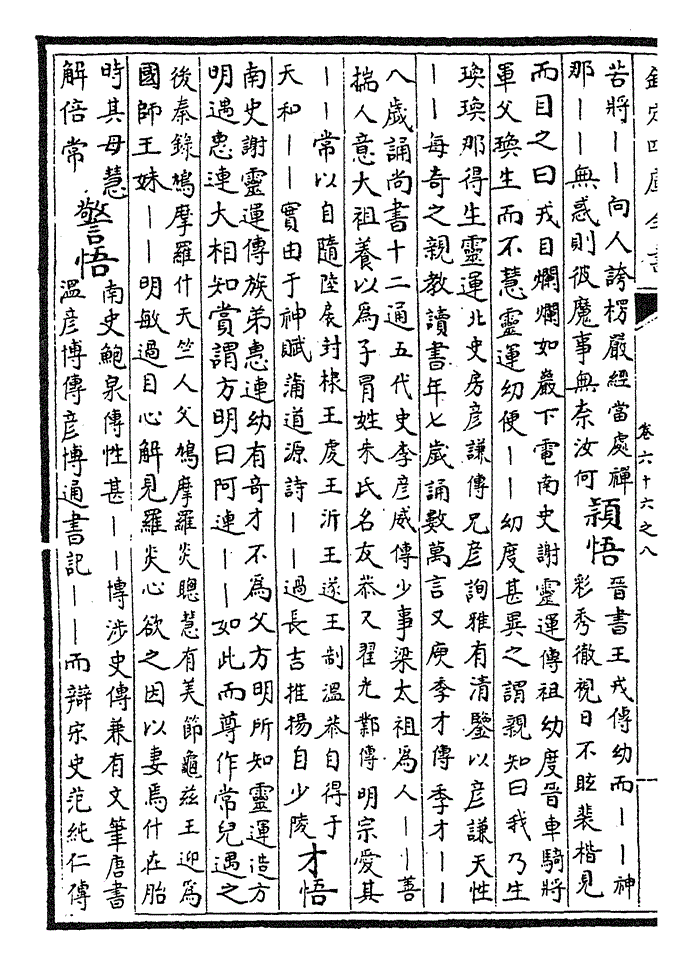 欽定四庫全書
卷六十六之八
若將｜｜向人誇楞嚴經當處禪
那｜｜無惑則彼魔事無奈汝何
頴悟
晉書王戎傳幼而｜｜神
彩秀徹視日不眩裴楷見
而目之曰戎目爛爛如巖下電南史謝靈運傳祖幼度晉車騎將
軍父瑍生而不慧靈運幼便｜｜幼度甚異之謂親知曰我乃生
瑍瑍那得生靈運北史房彦謙傳兄彦詢雅有清鑒以彦謙天性
｜｜每奇之親教讀書年七歲誦數萬言又庾季才傳季才｜｜
八歲誦尚書十二通五代史李彦威傳少事梁太祖為人｜｜善
揣人意大祖養以為子冒姓朱氏名友恭又翟光鄴傳明宗愛其
｜｜常以自隨陸展封棣王虔王沂王遂王制溫恭自得于
天和｜｜實由于神賦蒲道源詩｜｜過長吉推揚自少陵
才悟
南史謝靈運傳族弟惠連幼有奇才不為父方明所知靈運造方
明遇惠連大相知賞謂方明曰阿連｜｜如此而尊作常兒遇之
後秦錄鳩摩羅什天竺人父鳩摩羅炎聰慧有美節龜兹王迎為
國師王妹｜｜明敏過目心解見羅炎心欲之因以妻焉什在胎
時其母慧
解倍常
警悟
南史鮑泉傳性甚｜｜博涉史傳兼有文筆唐書
溫彦博傳彦博通書記｜｜而辯宋史范純仁傳